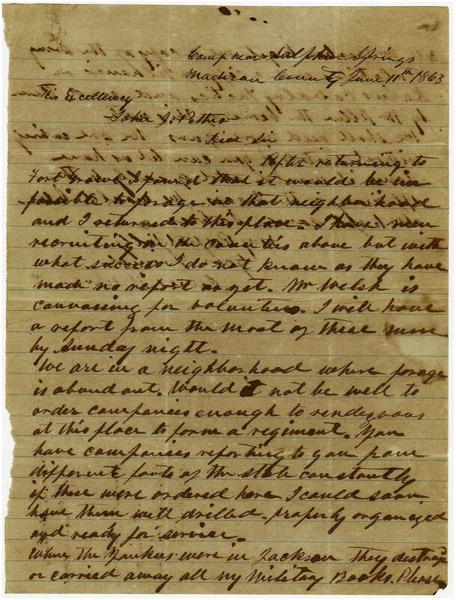 Camp near Sulphur Springs
Madison County June 11th 1863
His Excellency
John J. Pettus
Dear Sir
After returning to
Fort I found that it would be im
possible to forage in that neighborhood
and I returned to this place. I have men
recruiting in the counties above but with
what success I do not know as they have
made no report as yet. Mr Welsh is
canvassing for volunteers. I will have
a report from the most of these men
by Sunday night.
We are in a neighborhood where forage
is abundant. Would it not be well to
order companies enough to rendezvous
at this place to form a regiment. You
have companies reporting to you from
different parts of the state constantly
if these were ordered here I could soon
have them well drilled properly organized
and ready for service.
When the Yankees were in Jackson they destroy
or carried away all my Military Books. Please